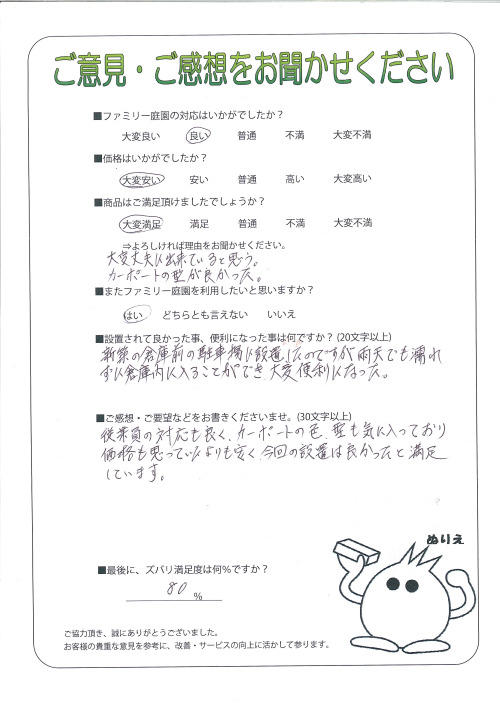 ご意見・ご感想をお聞かせください
■ファミリー庭園の対応はいかがでしたか？
大変良い 良い 普通 不満 大変不満
■価格はいかがでしたか？
大変安い 安い 普通 高い 大変高い
■商品はご満足頂けましたでしょうか？
大変満足 満足 普通 不満 大変不満
⇒よろしければ理由をお聞かせください。
大変丈夫に出来ていると思う。
カーポートの型が良かった。
■またファミリー庭園を利用したいと思いますか？
はい どちらとも言えない いいえ
■設置されて良かった事、便利になった事は何ですか？(20文字以上)
新築の倉庫前の駐車場に設置したのですが雨天でも濡れ
ずに倉庫内に入ることができ大変便利になった。
■ご感想・ご要望などをお書きくださいませ。(30文字以上)
従業員の対応も良く、カーポートの色、型も気に入っており
価格も思っていたよりも安く、今回の設置は良かったと満足
しています。
ぬりえ
■最後に、ズバリ満足度は何%ですか？
80 %
ご協力頂き、誠にありがとうございました。
お客様の貴重な意見を参考に、改善・サービスの向上に活かして参ります。